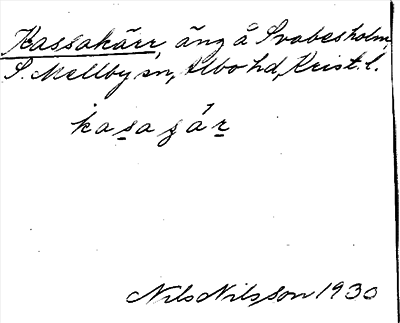 Kassakärr, äng å Svabesholm,
S. Mellby sn, Albo hd, Krist. l.
kasaʒár
Nils Nilsson 1930